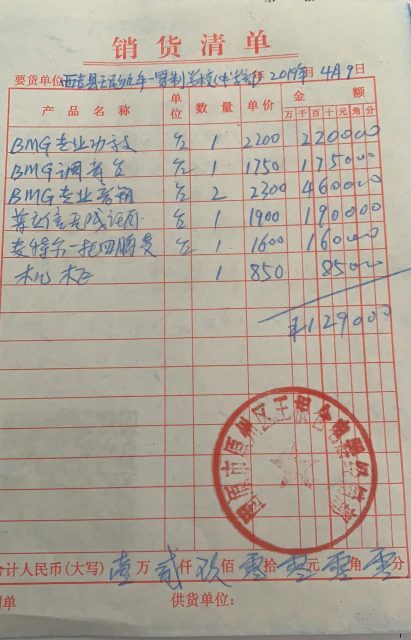 销货清单
要货单位 西吉县王民九年一贯制学校(中学部) 2019年 4月9日
产品名称 单位 数量 单价 金额
万 千 百 十 元 角 分
BMG专业功放 台 1 2200 220000
BMG调音台 台 1 1750 175000
BMG专业音箱 台 2 2300 460000
台 1 1900 190000
一拖四 台 1 1600 160000
机柜 1 850 85000
¥1129000
合计人民币(大写) 壹万 贰仟 玖佰 零拾 零元 零角 零分
供货单位: